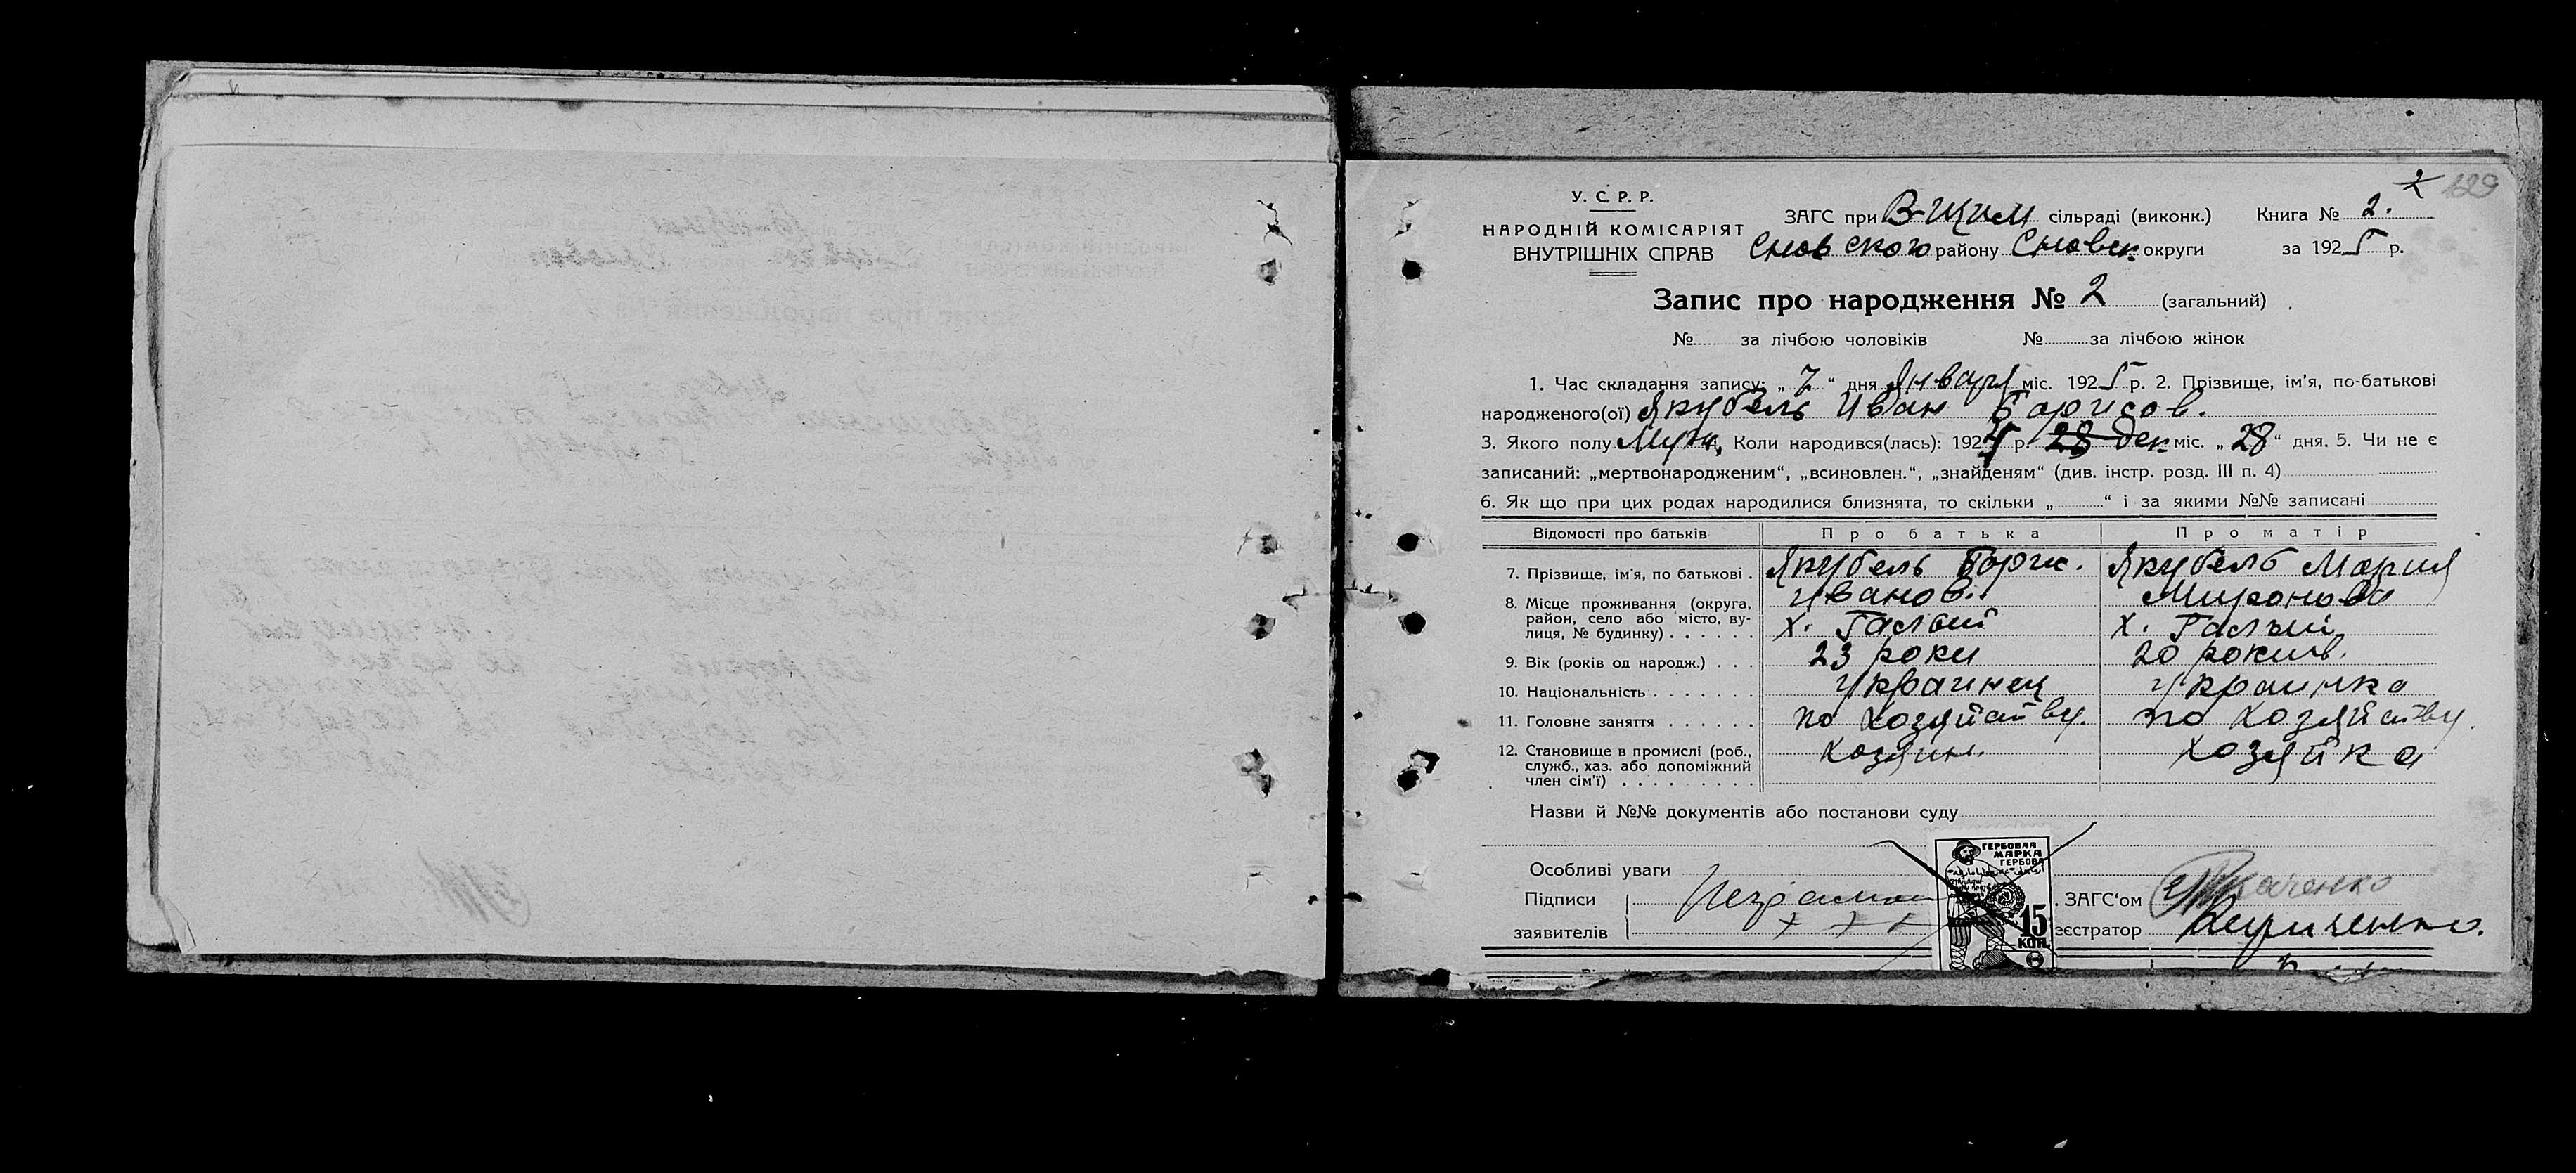 2 129
У. С. Р. Р.
НАРОДНІЙ КОМІСАРІЯТ
ВНУТРІШНІХ СПРАВ
ЗАГС при В-Щим сільраді (виконк.) Книга № 2.
Сновского району Сновск. округи за 1925 р.
Запис про народження № 2 (загальний)
№ за лічбою чоловіків № за лічбою жінок
1. Час складання запису: „ 7 “ дня Января міс. 1925 р. 2. Прізвище, ім'я, по-батькові
народженого(ої) Якубель Иван Борисов.
3. Якого полу Муж. Коли народився(лась): 1924 р. 28 Дек міс. „ 28 “ дня. 5. Чи не є
записаний: „мертвонародженим“, „всиновлен.“, „знайденям“ (див. інстр. розд. III п. 4)
6. Як що при цих родах народилися близнята, то скільки „ “ і за якими №№ записані
Відомості про батьків Про батька Про матір
7. Прізвище, ім'я, по батькові . Якубель Борис. Якубель Мария
Иванов. Миронова
8. Місце проживання (округа,
район, село або місто, ву-
лиця, № будинку) . . . . . . х. Х. 
9. Вік (років од народж.) . . . 23 роки 20 років.
10. Національність . . . . . . . Украинец Украинка
11. Головне заняття . . . . . . по хозяйству. по хозяйству.
12. Становище в промислі (роб.,
служб., хаз. або допоміжний
член сім'ї) . . . . . . . . хозяин. хозяйка
Назви й №№ документів або постанови суду
Особливі уваги
ГЕРБОВАЯ
МАРКА
ГЕРБОВА
15
КОП.
Підписи
заявителів + + +
. ЗАГС'ом Ткаченко
еєстратор Кириченко.